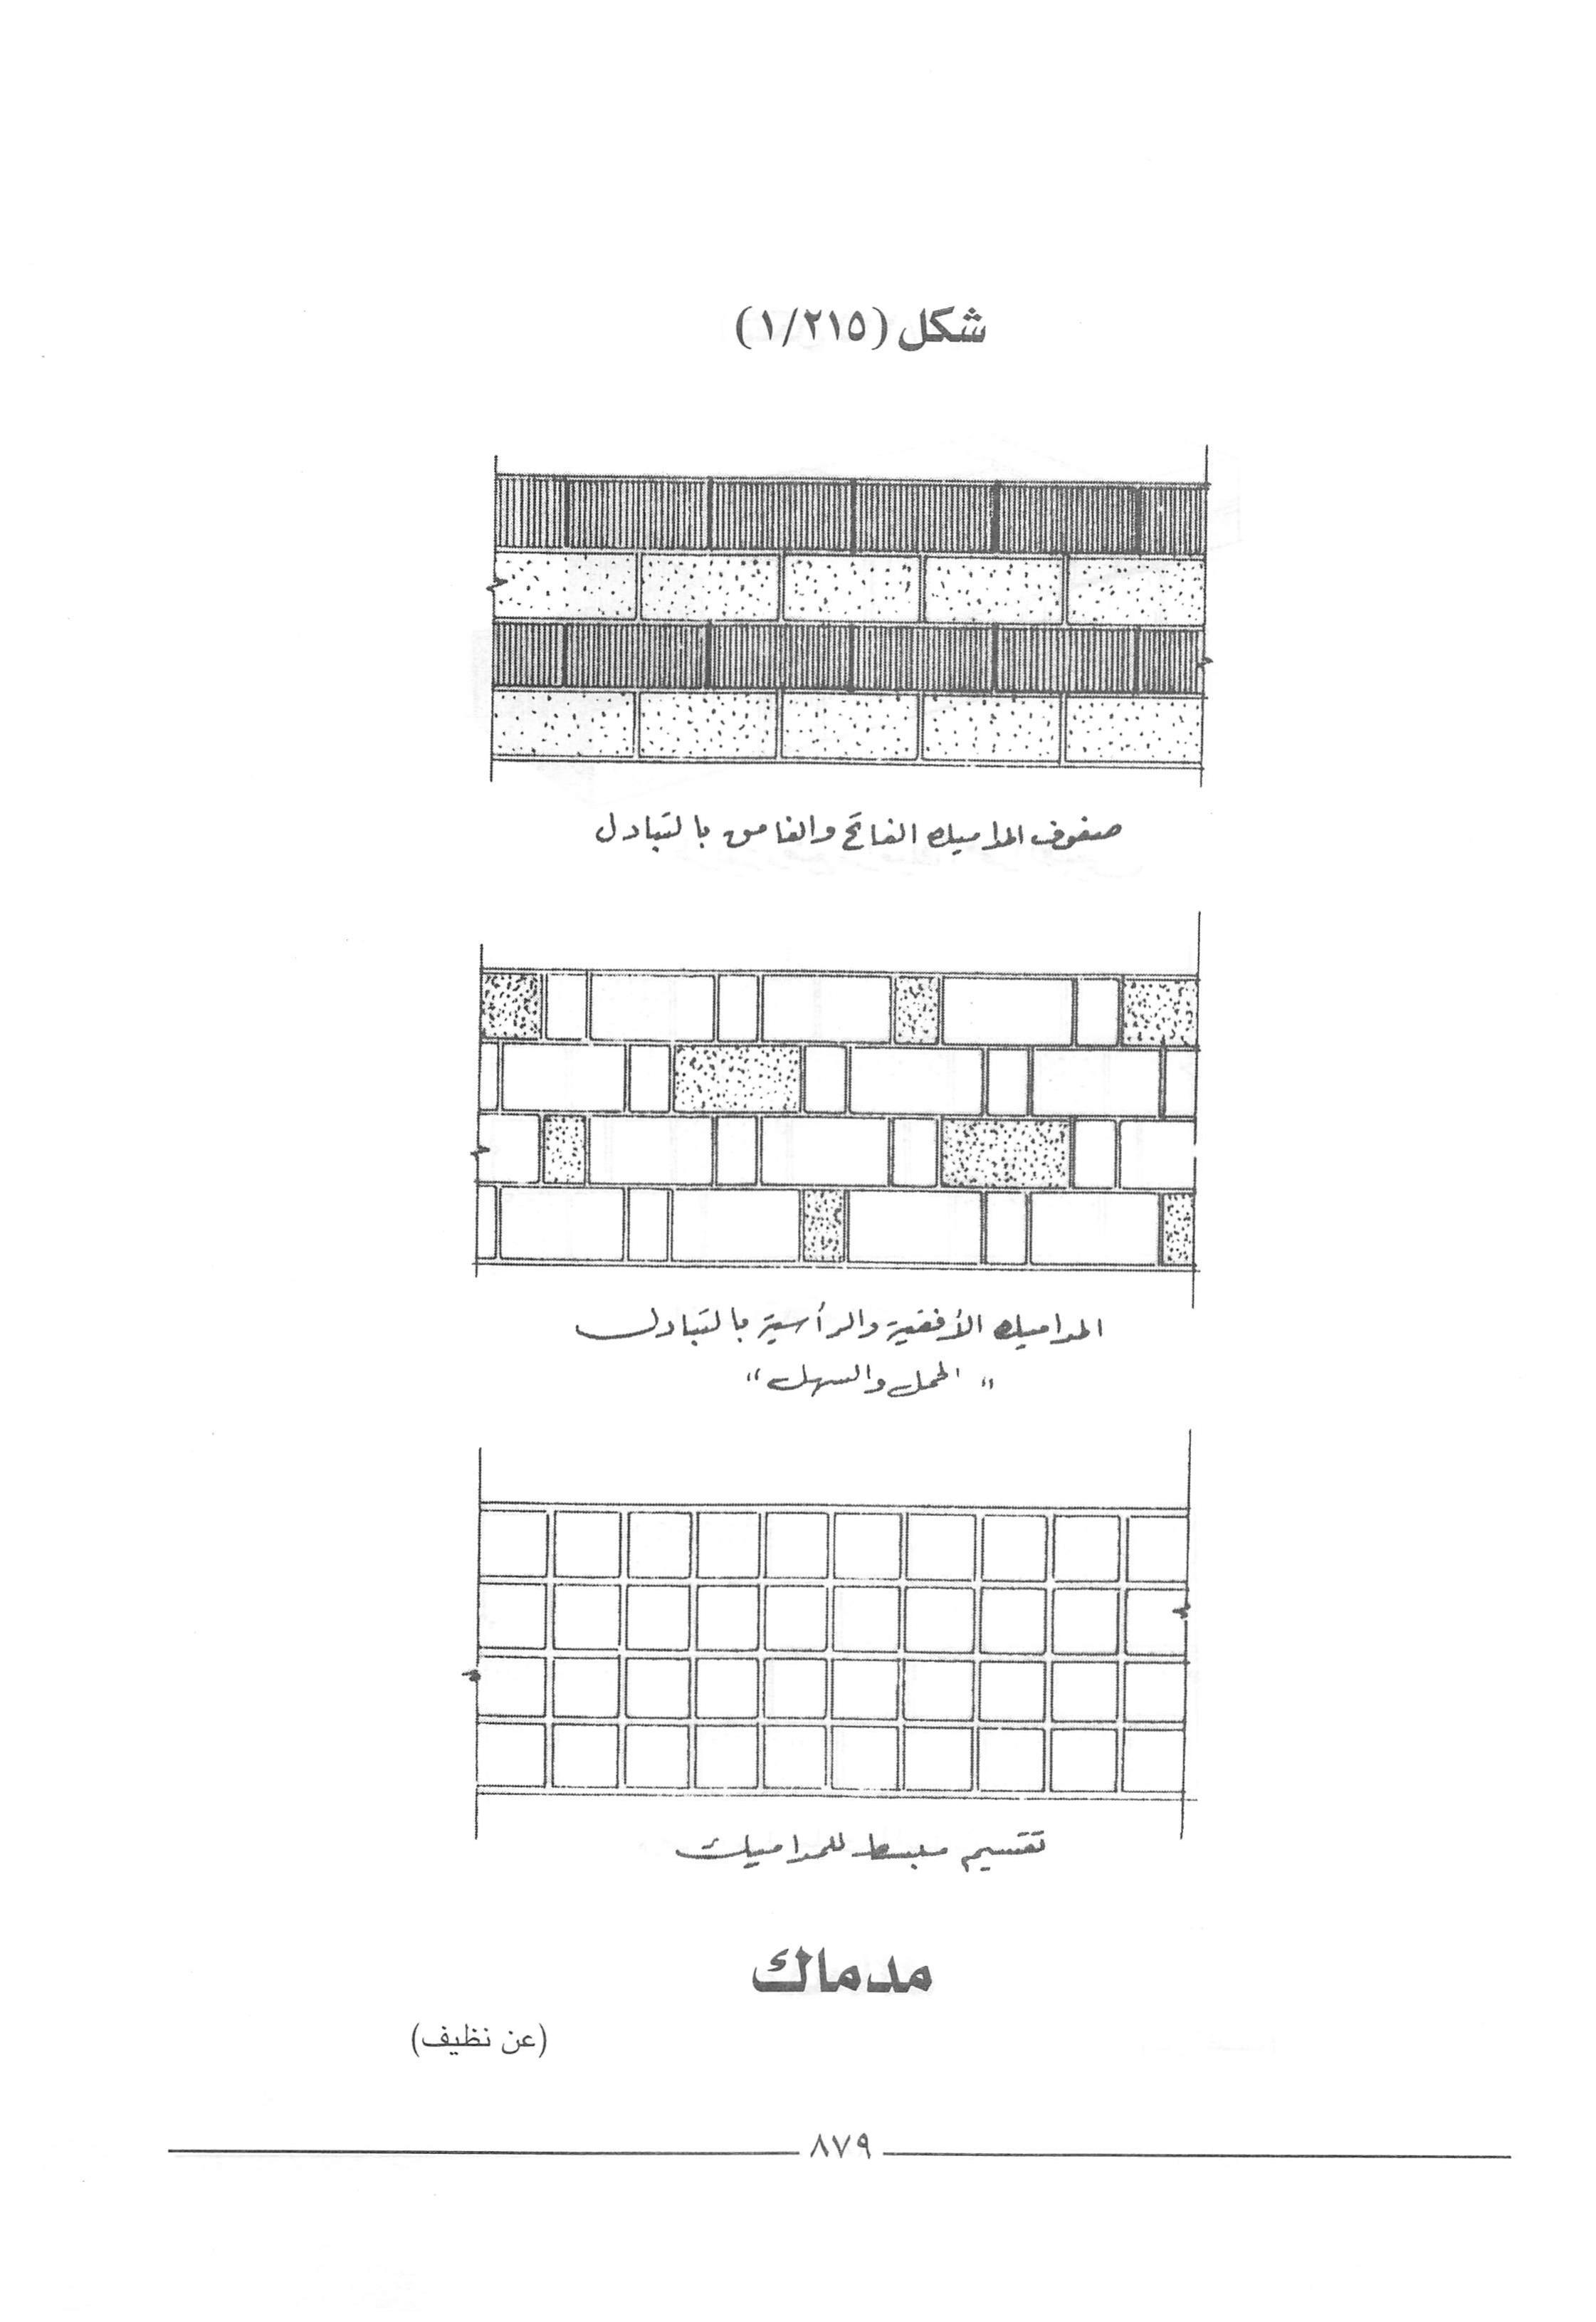 شكل (١/٢١٥)
صفوف المداميك الفاتح والغامق بالتبادل
المداميك الأفقية والرأسية بالتبادل
"الحمل والسهل"
تقسيم مبسط للمداميك
مدماك
(عن نظيف)
٨٧٩